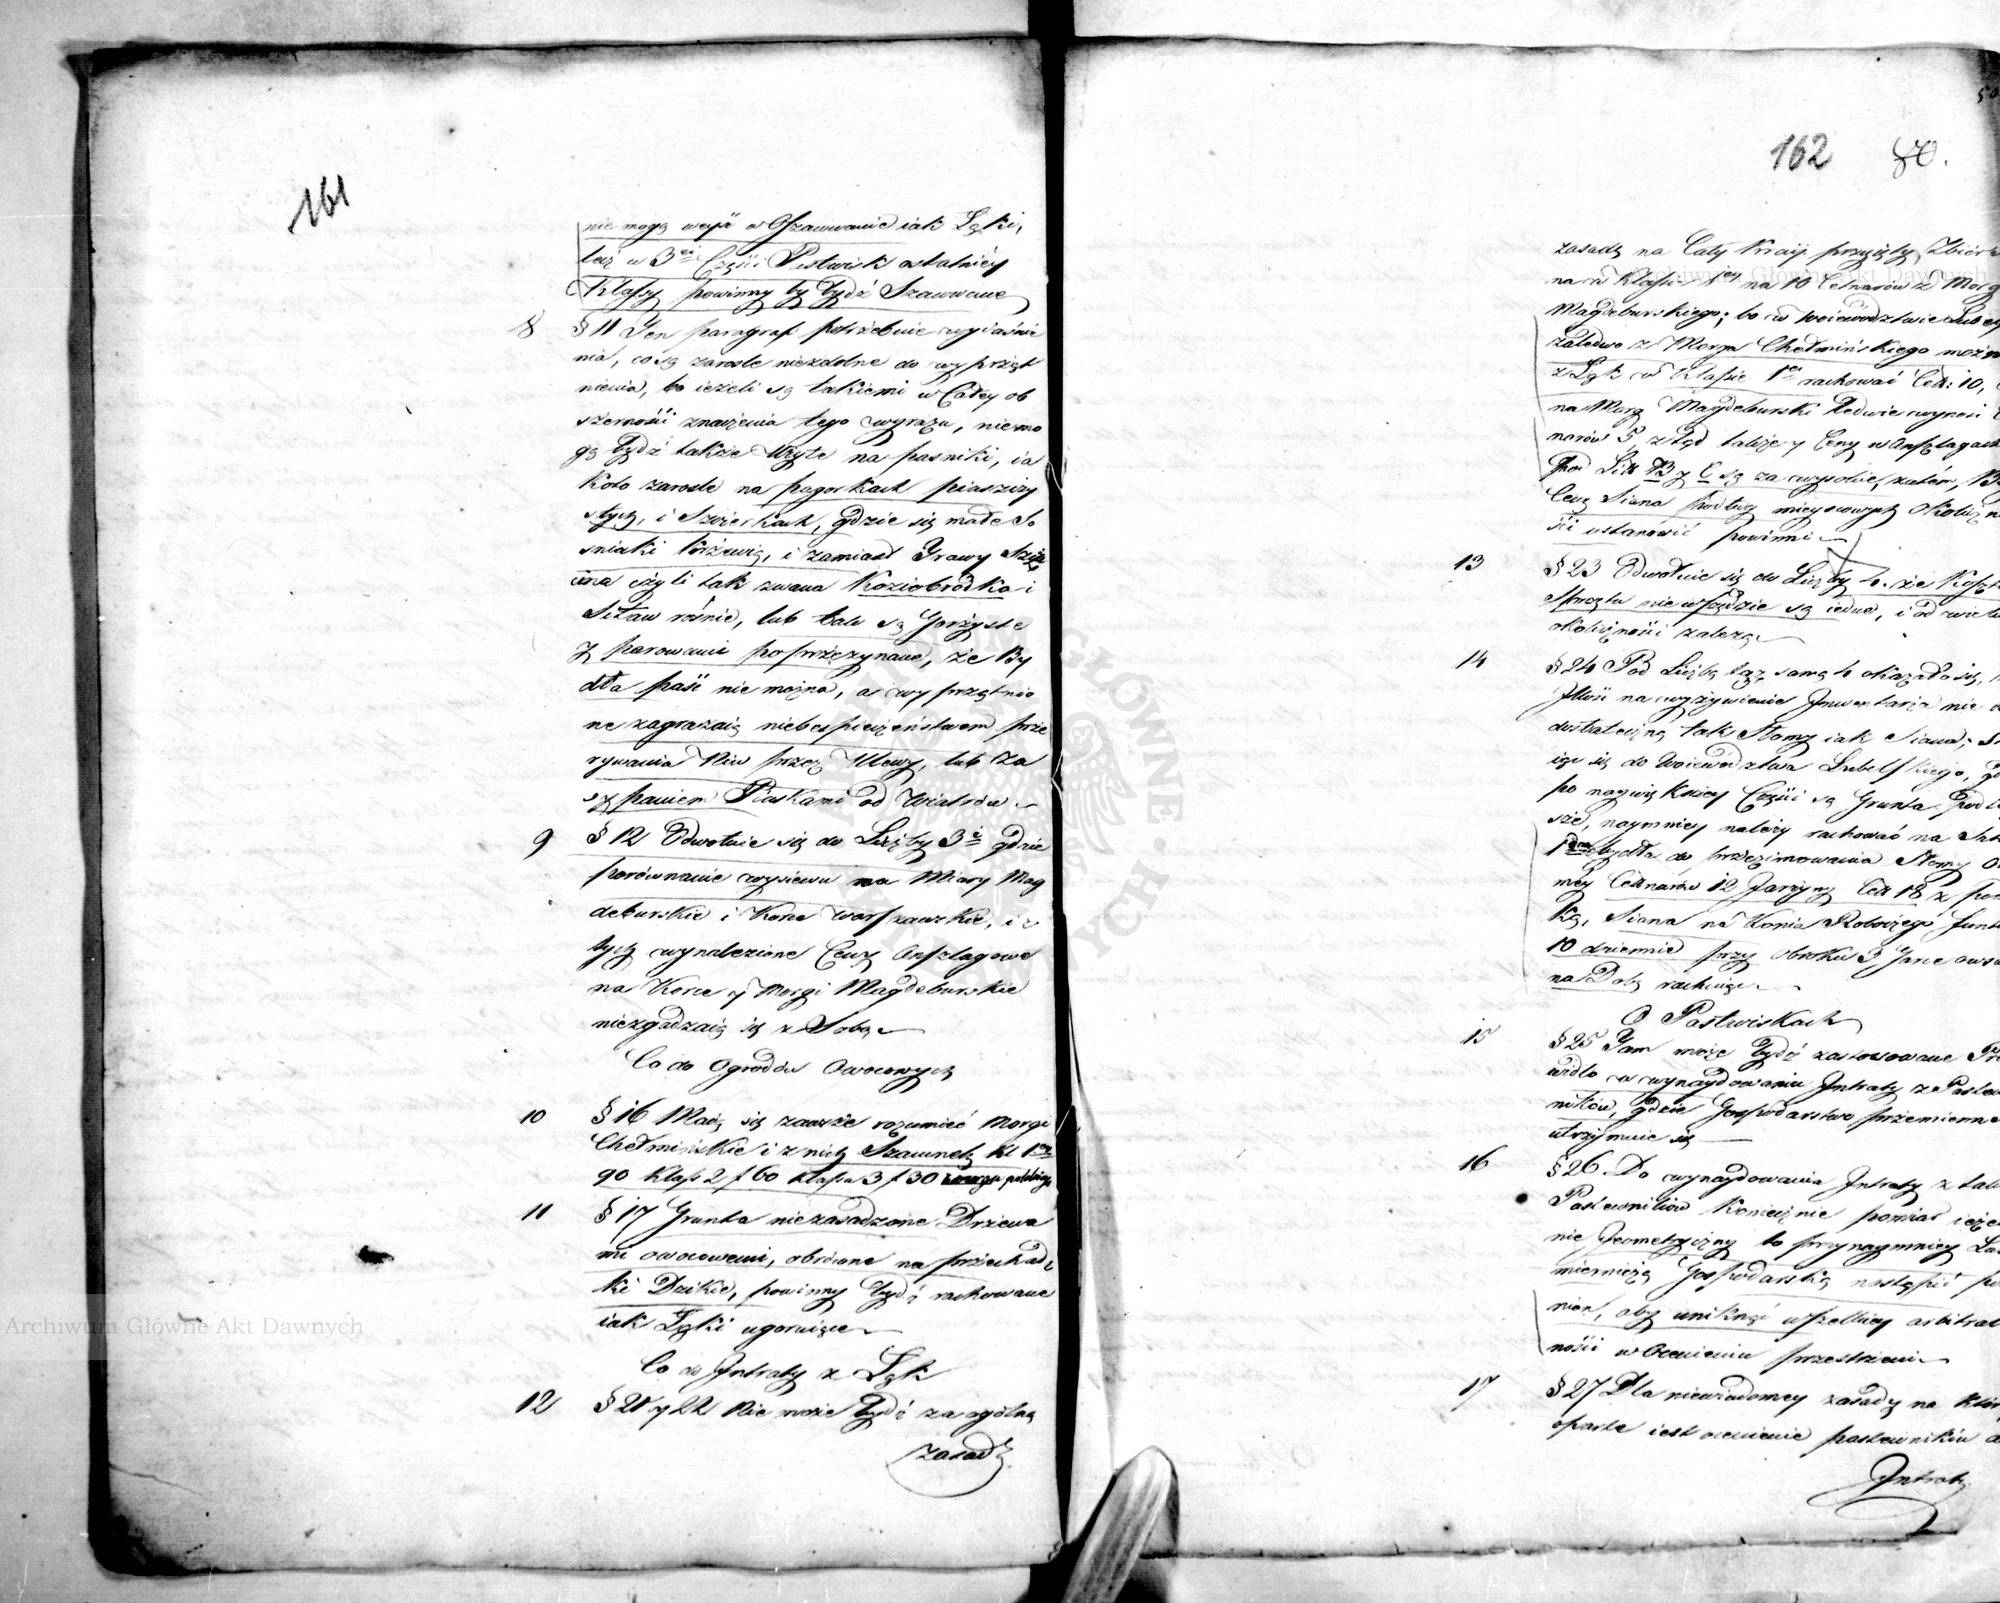 161
nie mogą wejść w Oszacowanie iak Łąki,
lecz w 3ei Częśći Pastwisk ostatniey
Klassy powinny by bydź Szacowane
8 § 11 Ten paragraf potrzebuie wyiaśnie
nia, co są zarosle niezdolne do wyprząt
nienia, bo ieżeli są takiemi w Całey ob
szerności znaczenia tego wyrazu, nie mo
gą bydź także użyte na pasniki, ia
koto zarosle na pagorkach piasczy
stych, i Szczerkach, gdzie się małe So
sniaki krzewią, i zamiast Trawy Szczo
cina czyli tak zwana Koziobrodka i
Sitaw rośnie, lub tam są Gorzyste
y parowami poprzezynane, że By
dła paść nie można, a wyprzątnio
ne zagrażaią niebespieczeństwem prze
rywania Niw przez Ulewy, lub Za
sypaniem Piaskami od Wiatrów
9 § 12 Odwołuie się do Liczby 3i gdzie
porównanie wysiewu na Miary Mag
deburskie i Korce Warszawskie, i z
tych wynalezione Ceny Anszlagowe
na Korce y Morgi Magdeburskie
niezgadzaią się z Sobą
Co do Ogrodów Owocowych
10 § 16 Maią się zawsze rozumieć Morgi
Chełmińskie i z nich Szacunek Kl 1ey
90 Klass 2 f 60 Klassa 3 f 30
11 § 17 Grunta niezasadzone Drzewa
mi owocowemi, obrócone na przechadz
ki Dzikie, powinny bydź rachowane
iak Łąki ugorniące
Co do Intraty z Łąk
12 § 21 y 22 Nie może bydź za ogólną
zasadę
162 80.
zasadę na Cały Kraj przyięty Zbiór
na w Klassie 1ey na 10 Cetnarów z Morg
Magdeburskiego; bo w Woiewodztwie Lubel
zaledwo z Morga Chełmińskiego możn
z Łąk w Klassie 1ei rachować Cett: 10,
na Morg Magdeburski ledwie wynosi
narów 5, z tąd także y Ceny w Anszlagach
Pod Litt B y C są za wysokie, zatém,
Cenę Siana podług mieyscowych Okoliczn
ści ustanowić powinni
13 § 23 Odwołuie się do Liczby 4. że Koszta
Sprzętu nie wszędzie są iedne, i od wielu
okoliczności zależą
14 § 24 Pod Liczbą tąż samą 4 okazało się,
Ilość na wyżywienie Inwentarza nie
dostateczną tak Słomy iak Siana,
iąc się do Woiewodztwa Lubelskiego,
po naywiększey Części są Grunta
sze, naymniey należy rachować na Sztu
bydła do przezimowania Słomy
mey Cetnarów 12 Jarzyny Cett 18 z
ką, Siana na Konia Roboczego funt
10 dziennie przy obroku 3 Garce owsa
na Dobę rachuiąc
O Pastwiskach
15 § 25 Tam może bydź zastosowane Pra
widło w wynaydowaniu Intraty z Pastew
ników, gdzie Gospodarstwo przemienne
utrzymuie się
16 § 26. Do wynaydowania Intraty z
Pastewników Koniecznie pomiar ieże
nie Jeometryczny to przynaymniey
miernicza Gospodarską nastąpić po
nien, aby uniknąć wszelkiey arbitral
ności w Ocenieniu przestrzeni
17 § 27 Dla niewiadomey zasady na któr
oparte iest ocenienie pastewników
Intraty